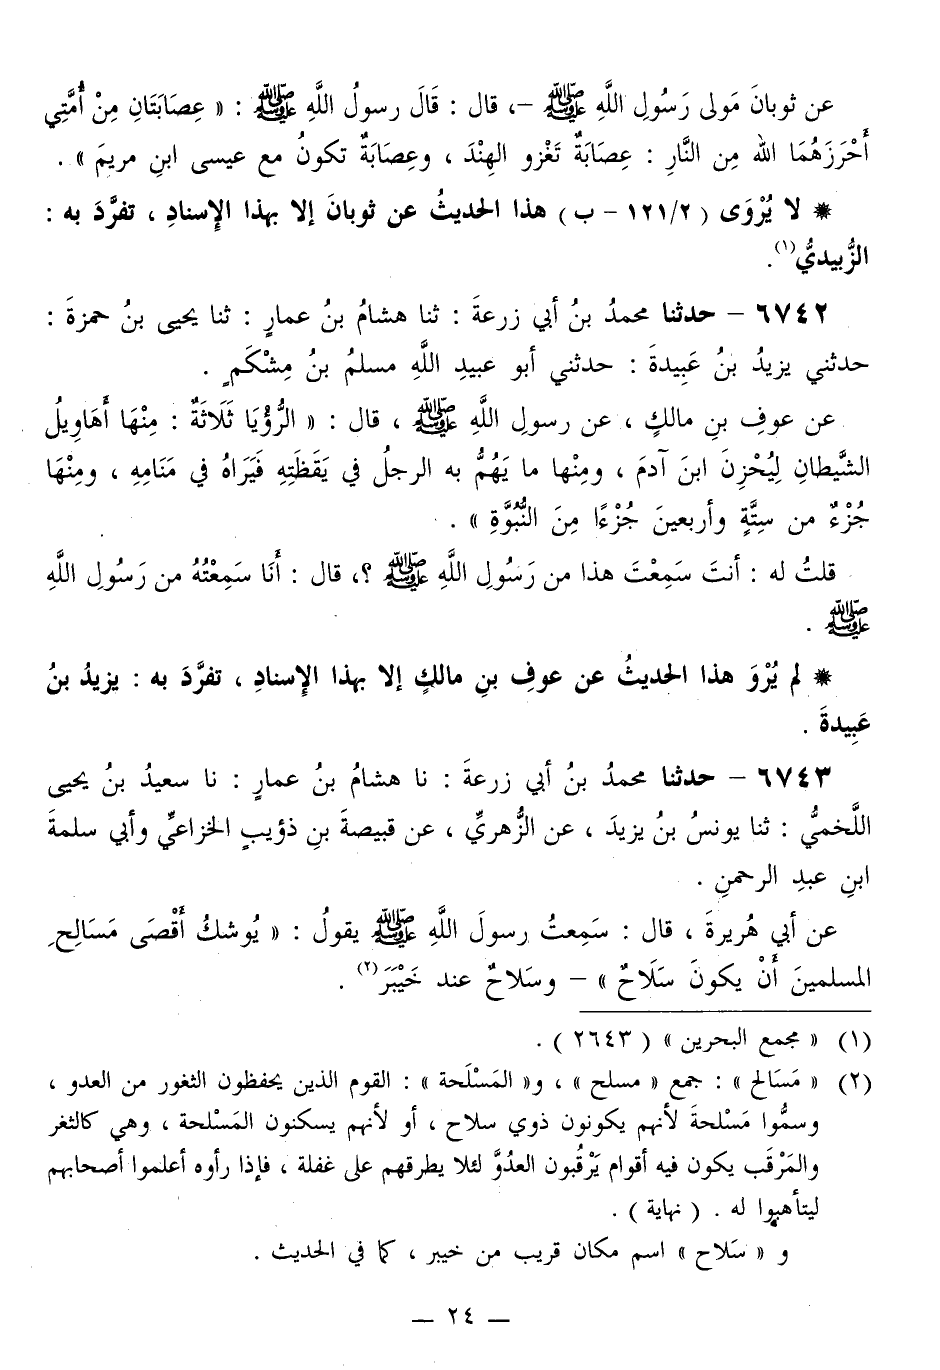 عن ثوبانَ مَولى رَسُولِ اللَّهِ ﷺ –، قال : قَالَ رسولُ اللَّهِ ﷺ : « عِصَابَتَانِ مِنْ أُمَّتِي
أَحْرَزَهُمَا اللّه مِن النَّارِ : عِصَابَةٌ تَغْزو الهِنْدَ ، وعِصَابَةٌ تكونُ مع عيسى ابنِ مريمَ » .
* لا يُرْوَى ( ١٢١/٢ – ب ) هذا الحديثُ عن ثوبانَ إلا بهذا الإسنادِ ، تفرَّدَ به :
الزُّبيديُّ(١).
٦٧٤٢ – حدثنا محمدُ بنُ أبي زرعةَ : ثنا هشامُ بنُ عمارٍ : ثنا يحيى بنُ حمزةَ :
حدثني يزيدُ بنُ عَبِيدةَ : حدثني أبو عبيدِ اللَّهِ مسلمُ بنُ مِشْكَمٍ .
عن عوفِ بنِ مالكٍ ، عن رسولِ اللَّهِ ﷺ ، قال : « الرُّؤْيَا ثَلَاثَةٌ : مِنْهَا أَهَاوِيلُ
الشَّيطانِ لِيُحْزِنَ ابنَ آدمَ ، ومنْها ما يَهُمُّ به الرجلُ في يَقَظَتِهِ فَيَرَاهُ في مَنَامِهِ ، ومِنْهَا
جُزْءٌ من سِتَّةٍ وأربعينَ جُزْءًا مِنَ النُّبُوَّةِ » .
قلتُ له : أنتَ سَمِعْتَ هذا من رَسُولِ اللَّهِ ﷺ ؟، قال : أَنَا سَمِعْتُهُ من رَسُولِ اللَّهِ
ﷺ .
* لم يُرْوَ هذا الحديثُ عن عوفِ بنِ مالكٍ إلا بهذا الإسنادِ ، تفرَّدَ به : يزيدُ بنُ
عَبِيدةَ .
٦٧٤٣ – حدثنا محمدُ بنُ أبي زرعةَ : نا هشامُ بنُ عمارٍ : نا سعيدُ بنُ يحيى
اللَّخميُّ : ثنا يونسُ بنُ يزيدَ ، عن الزُّهريِّ ، عن قبيصةَ بنِ ذؤيبٍ الخزاعيِّ وأبي سلمةَ
ابنِ عبدِ الرحمنِ .
عن أبي هُريرةَ ، قال : سَمِعتُ رسولَ اللَّهِ ﷺ يقولُ : « يُوشكُ أَقْصَى مَسَالِحِ
المسلمينَ أَنْ يكونَ سَلَاحٌ » – وسَلاحٌ عند خَيْبَرَ(٢) .
(١) « مجمع البحرين » ( ٢٦٤٣ ) .
(٢) « مَسَالح » : جمع « مسلح » ، و« المَسْلَحة » : القوم الذين يحفظون الثغور من العدو ،
وسمُّوا مَسْلحةً لأنهم يكونون ذوي سلاح ، أو لأنهم يسكنون المَسْلحة ، وهي كالثغر
والمَرْقَب يكون فيه أقوام يَرْقُبون العدُوَّ لئلا يطرقهم على غفلة ، فإذا رأوه أعلموا أصحابهم
ليتأهبوا له . ( نهاية ) .
و « سَلاح » اسم مكان قريب من خيبر ، كما في الحديث .
— ٢٤ —